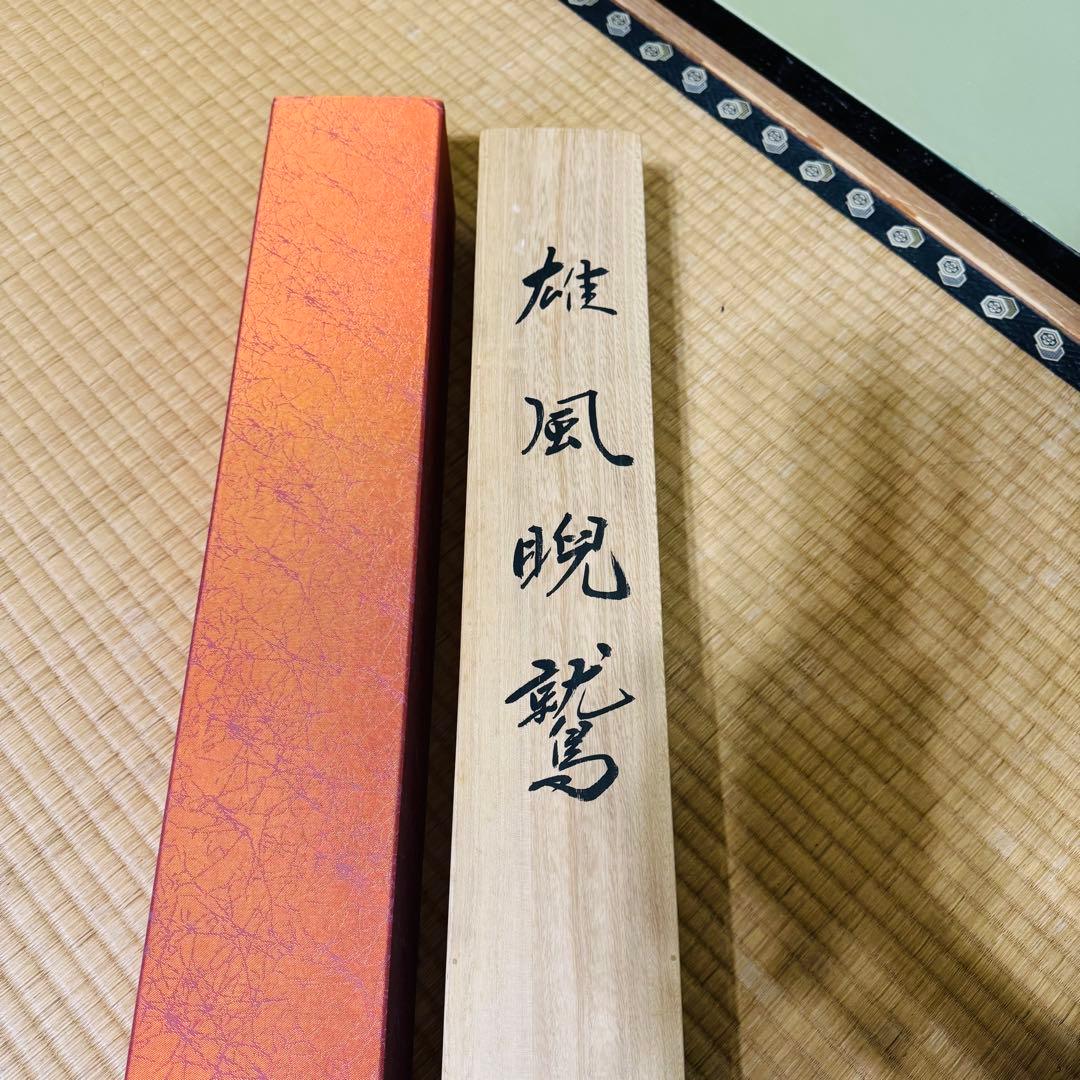 雄風睨鷲